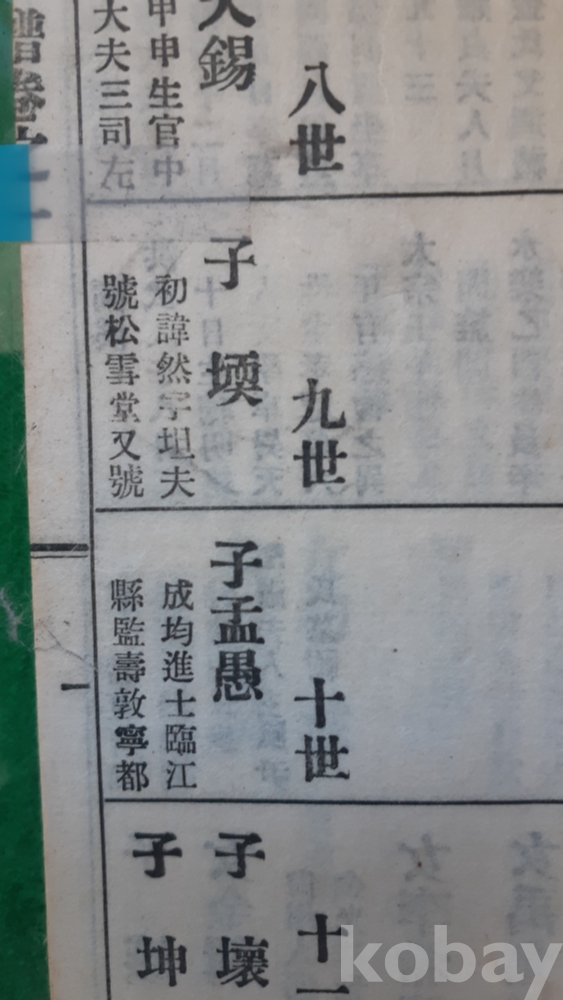 八世
錫
甲申生官中
大夫三司左
九世
子堧
初諱然字坦夫
號松雪堂又號
十世
子孟愚
成均進士臨江
縣監壽敦寧都
十一
子壞
子坤
譜卷之一
一
kobay